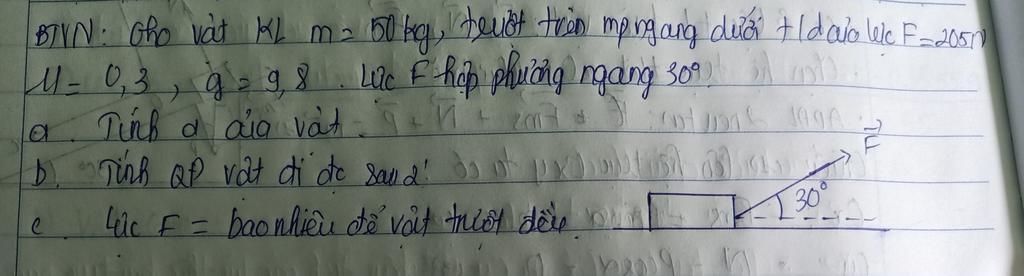 BTVN: Cho vật KL m = 50 kg, trượt trên mp ngang dưới t/d của lực F = 205N
μ = 0,3, g = 9,8. Lực F hợp phương ngang 30°
a. Tính a của vật.
b. Tính QĐ vật đi đc sau 2'
c. Lực F = bao nhiêu để vật trượt đều.
F
30°